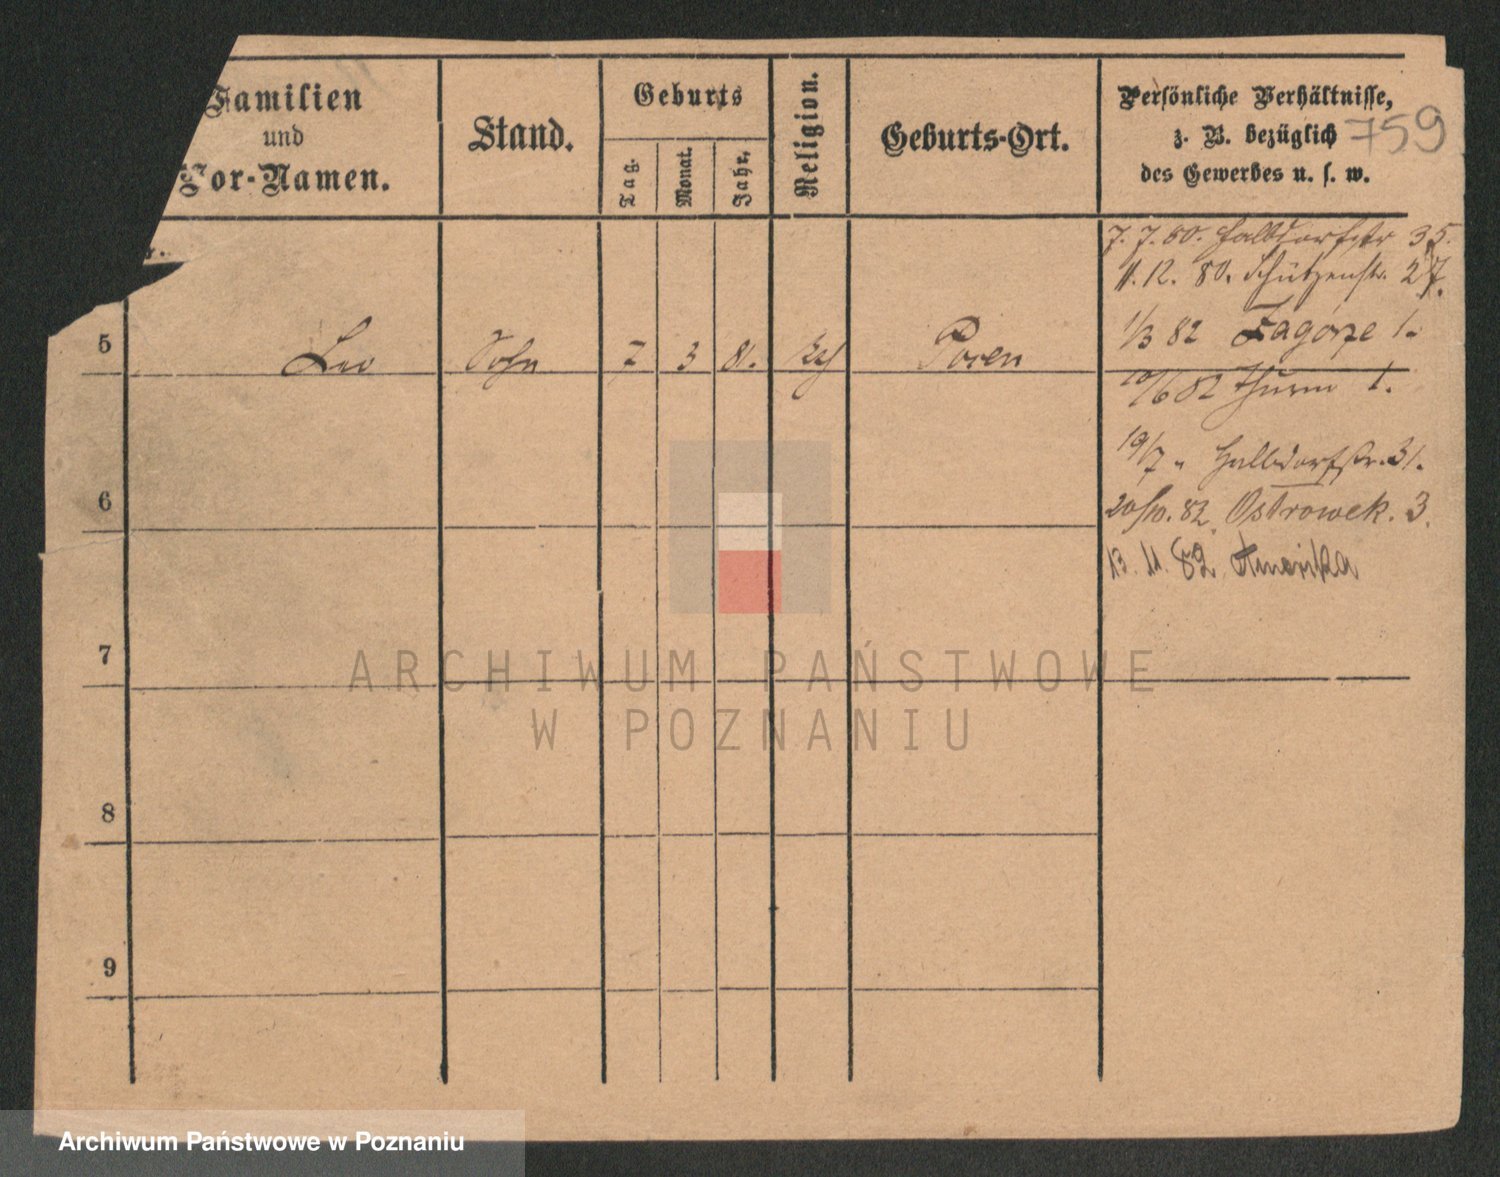 Familien
und
Vor-Namen.
Stand.
Geburts
Tag.
Monat.
Jahr.
Religion.
Geburts-Ort.
Persönliche Verhältnisse,
z. B. bezüglich
des Gewerbes u. s. w.
759
7. 7. 80. Halbdorfstr 35.
11. 12. 80. Schützenstr. 27.
5 Leo Sohn 7 3 81. Posen
1/3 82 Zagorze 1.
10/6 82 Thurm 1.
19/7 " Halbdorfstr. 31.
6
20/10. 82. Ostrowek. 3.
13. 11. 82. Amerika
7
8
9
ARCHIWUM PAŃSTWOWE
W POZNANIU
Archiwum Państwowe w Poznaniu